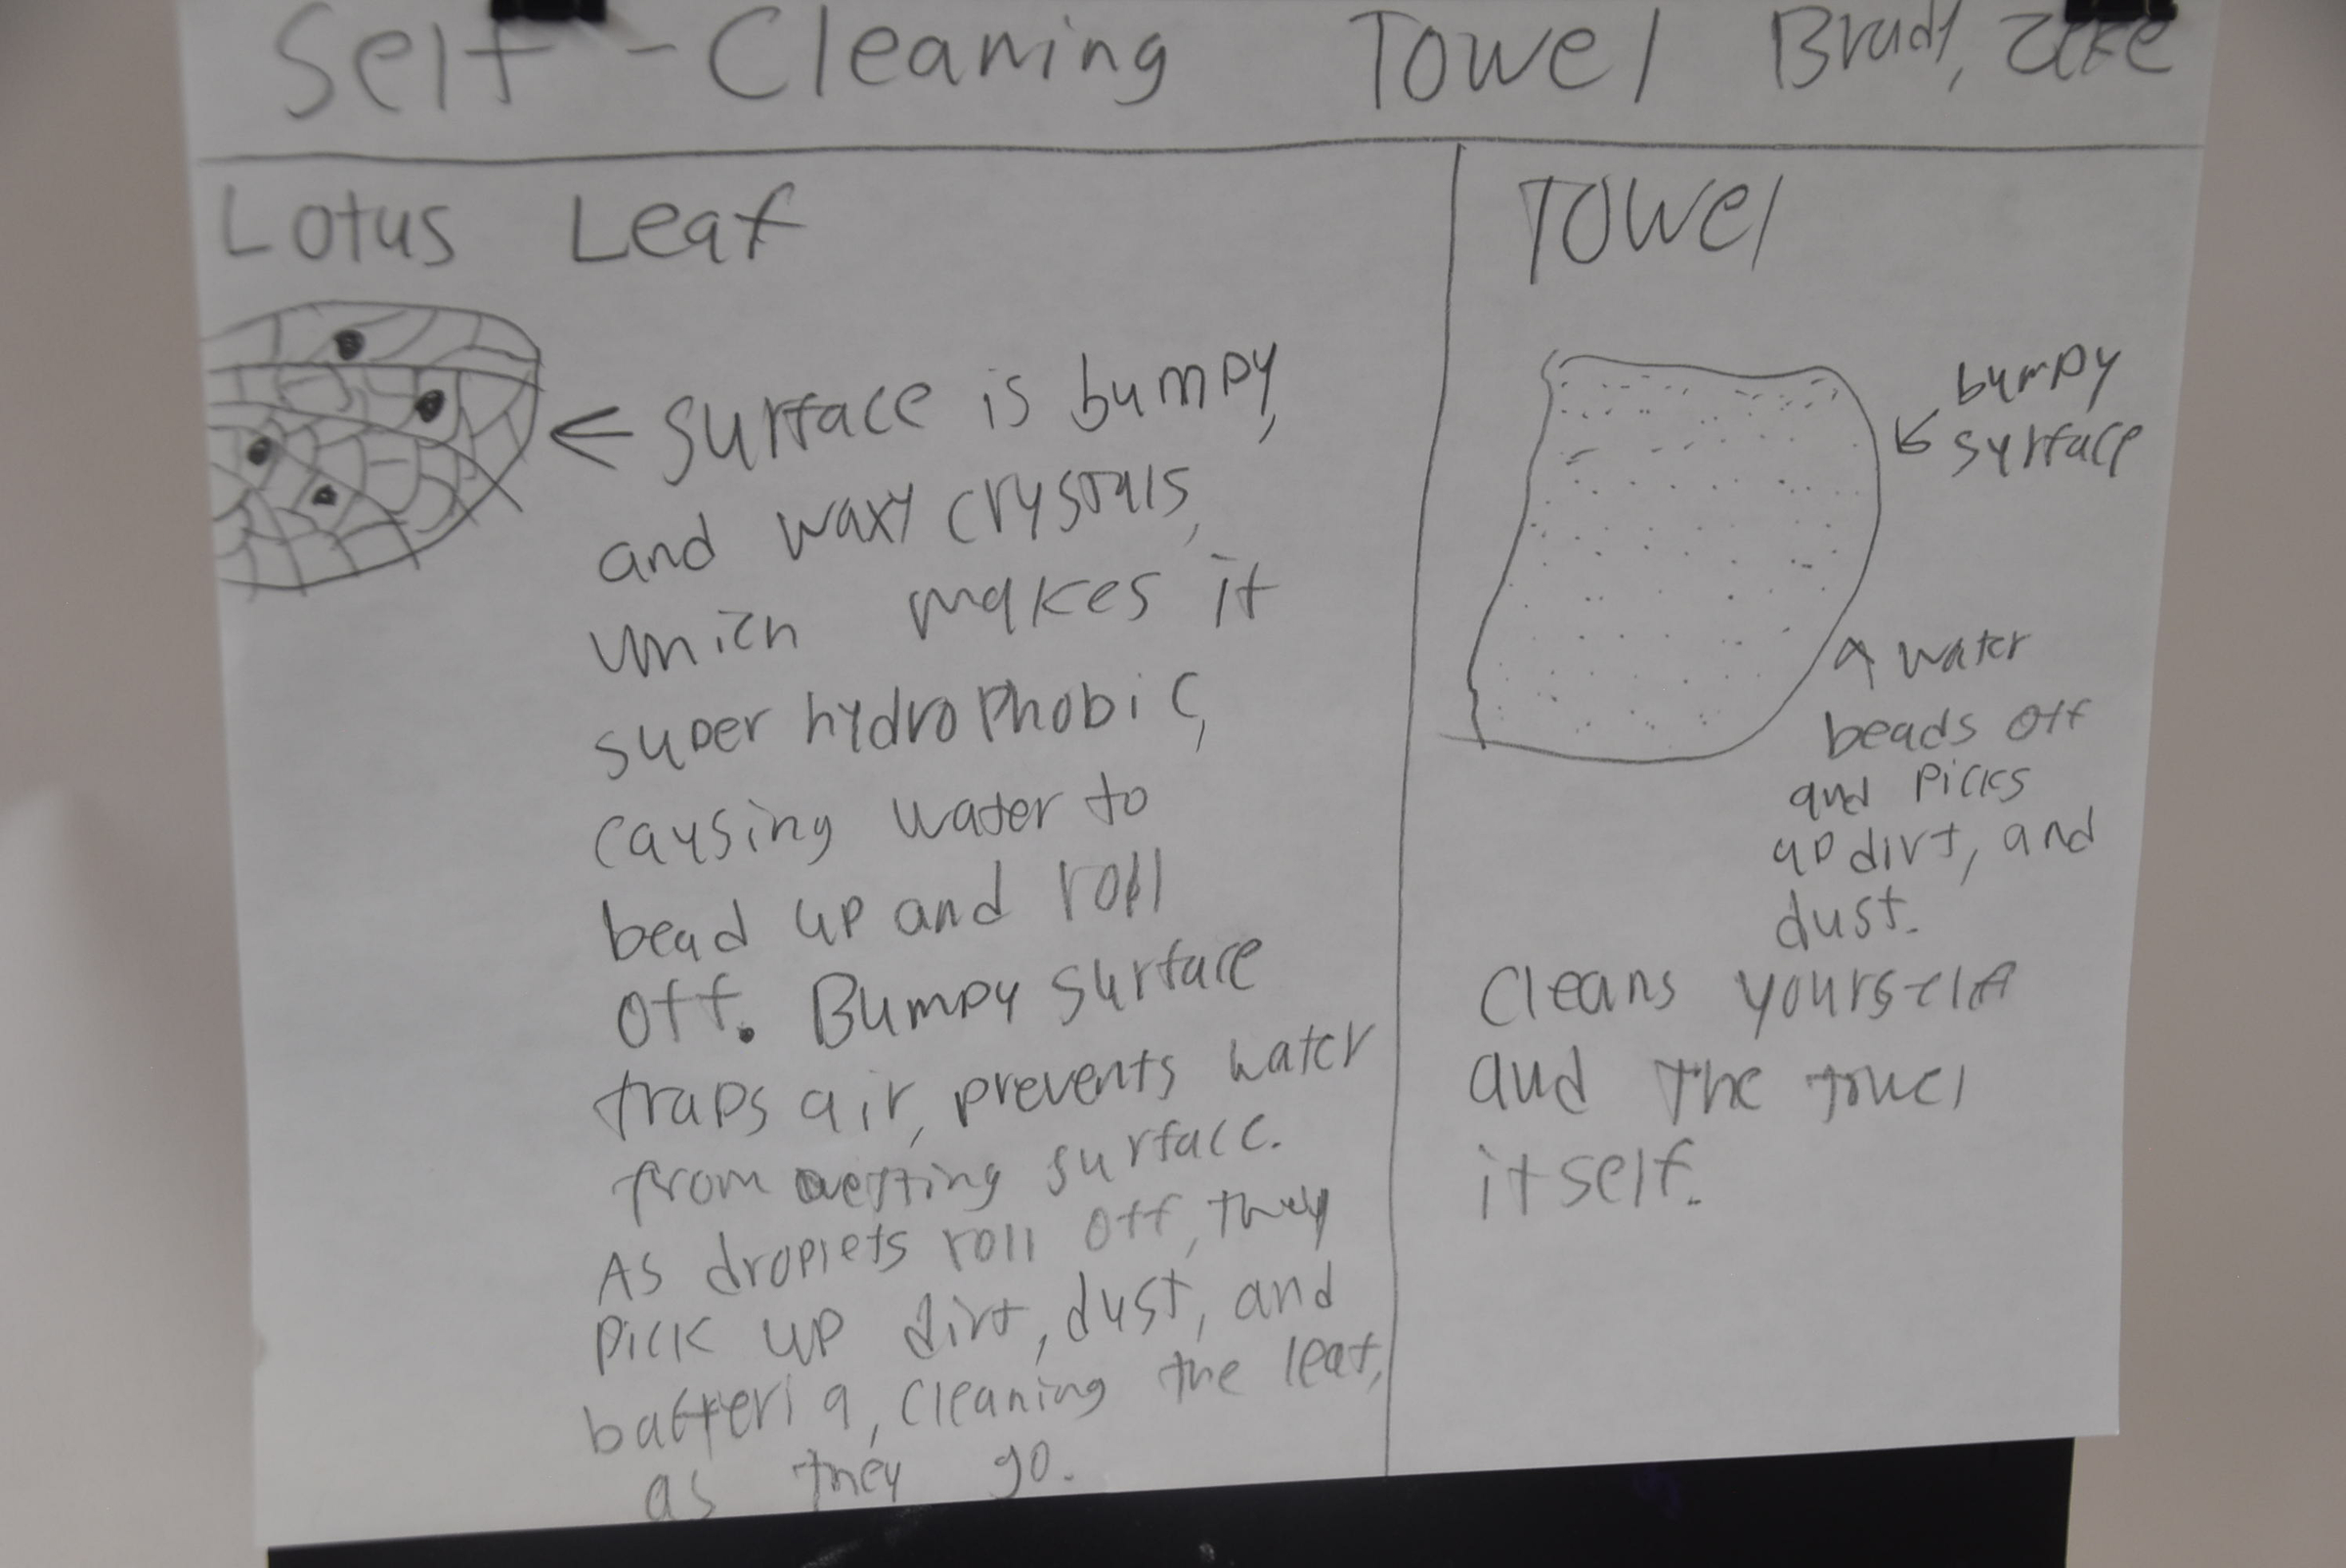 Self-Cleaning Towel
Lotus Leaf
surface is bumpy,
and waxy crystals,
which makes it
super hydrophobic,
causing water to
bead up and roll
off. Bumpy surface
traps air, prevents water
from wetting surface.
As droplets roll off, they
pick up dirt, dust, and
bacteria, cleaning the leaf,
as they go.
Towel
bumpy
surface
water
beads off
and picks
up dirt, and
dust.
Cleans yourself
and the towel
itself.